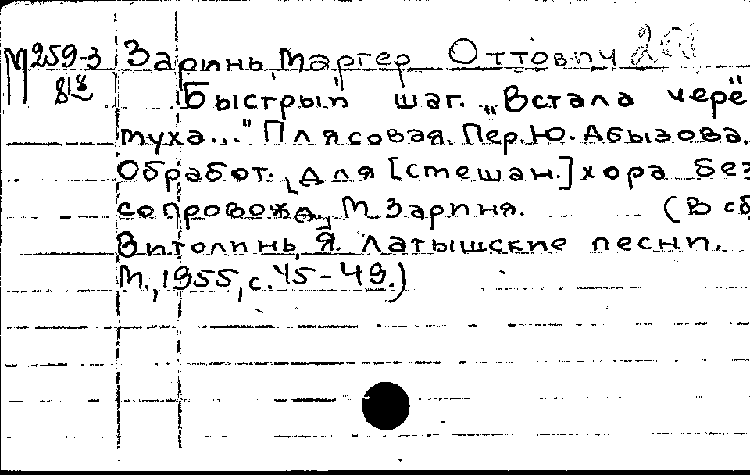 М259-3 Заринь, Маргер Оттович
818 Быстрый шаг. „Встала черё
муха..." Плясовая. Пер. Ю. Абызова.
Обработ. для [смешан.] хора без
сопровожд. М. Зариня. (В сб
Витолинь, Я. Латышские песни.
М., 1955, с. 45-49.)